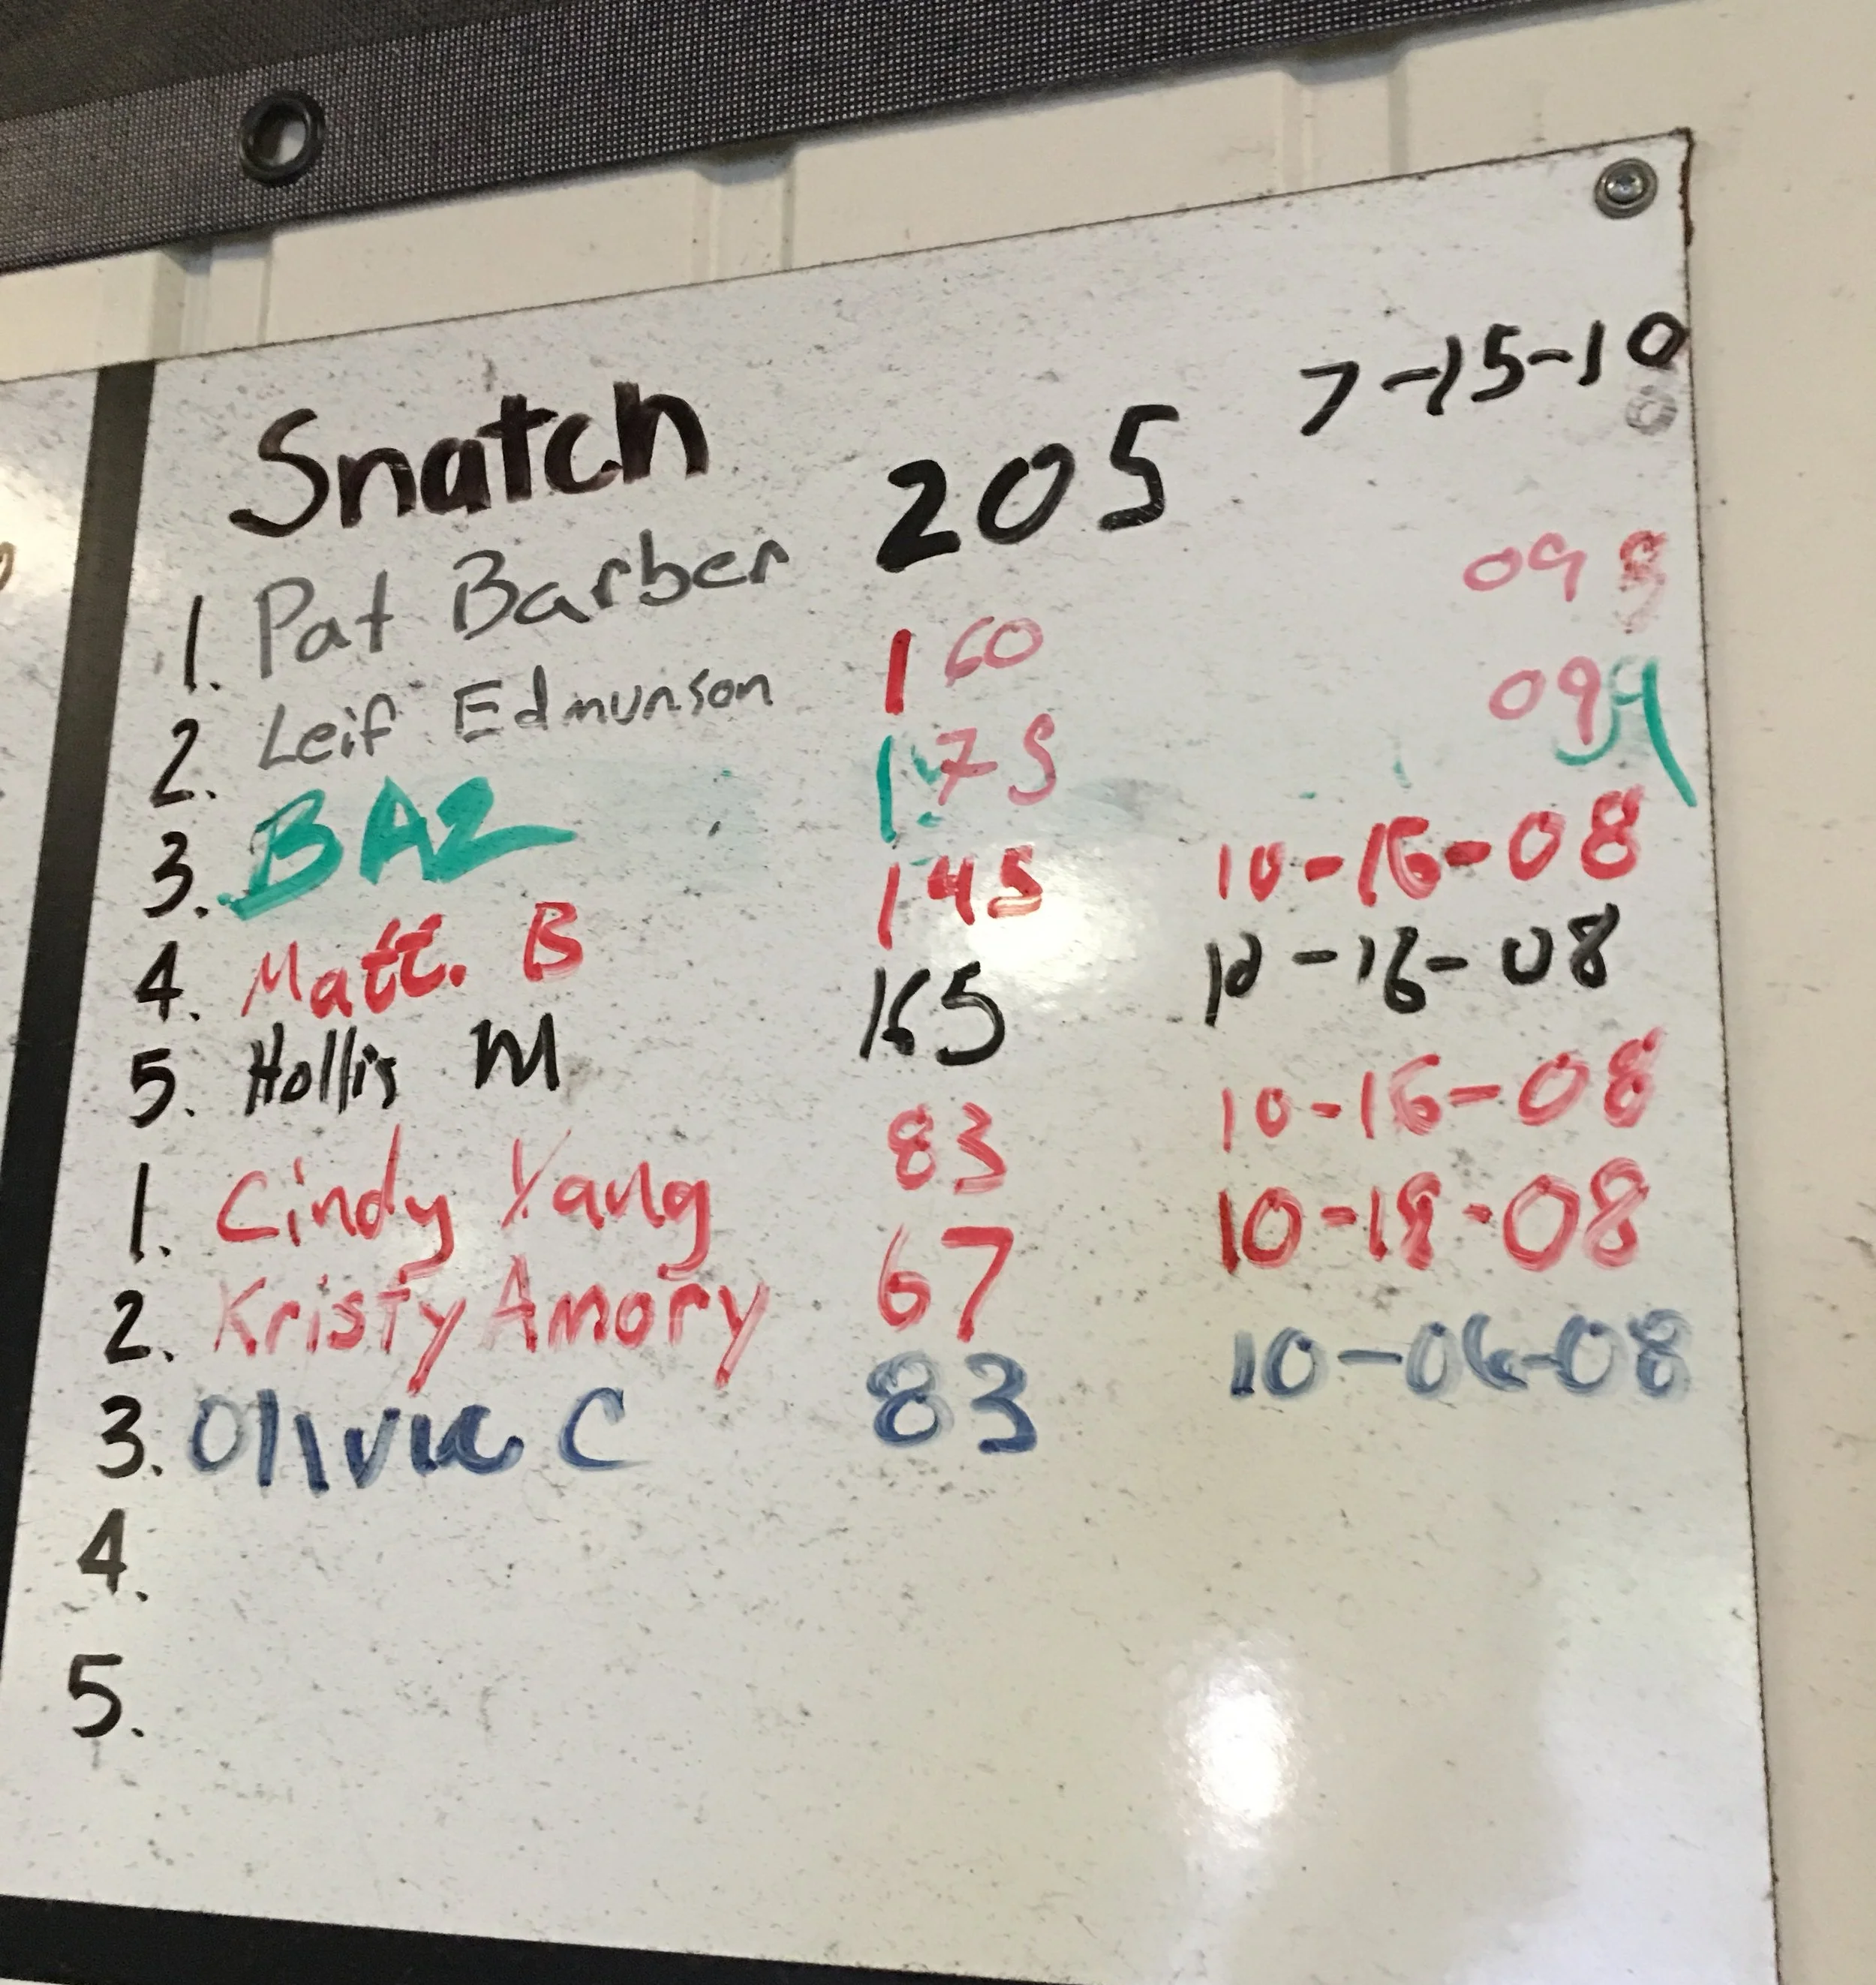 Snatch
1. Pat Barber 205 7-15-10
2. Leif Edmunson 160 09
3. BAZ 175 09
4. Matt. B 145 10-16-08
5. Hollis M 165 10-16-08
1. Cindy Yang 83 10-16-08
2. Kristy Amory 67 10-18-08
3. Olivia C 83 10-06-08
4.
5.